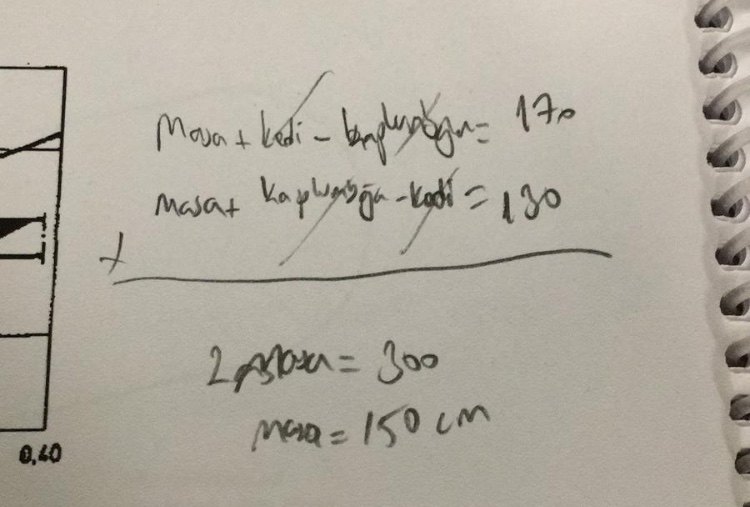 Masa + kedi - kaplumbağa = 170
masa + kaplumbağa - kedi = 130
+
2 masa = 300
masa = 150 cm
0,40